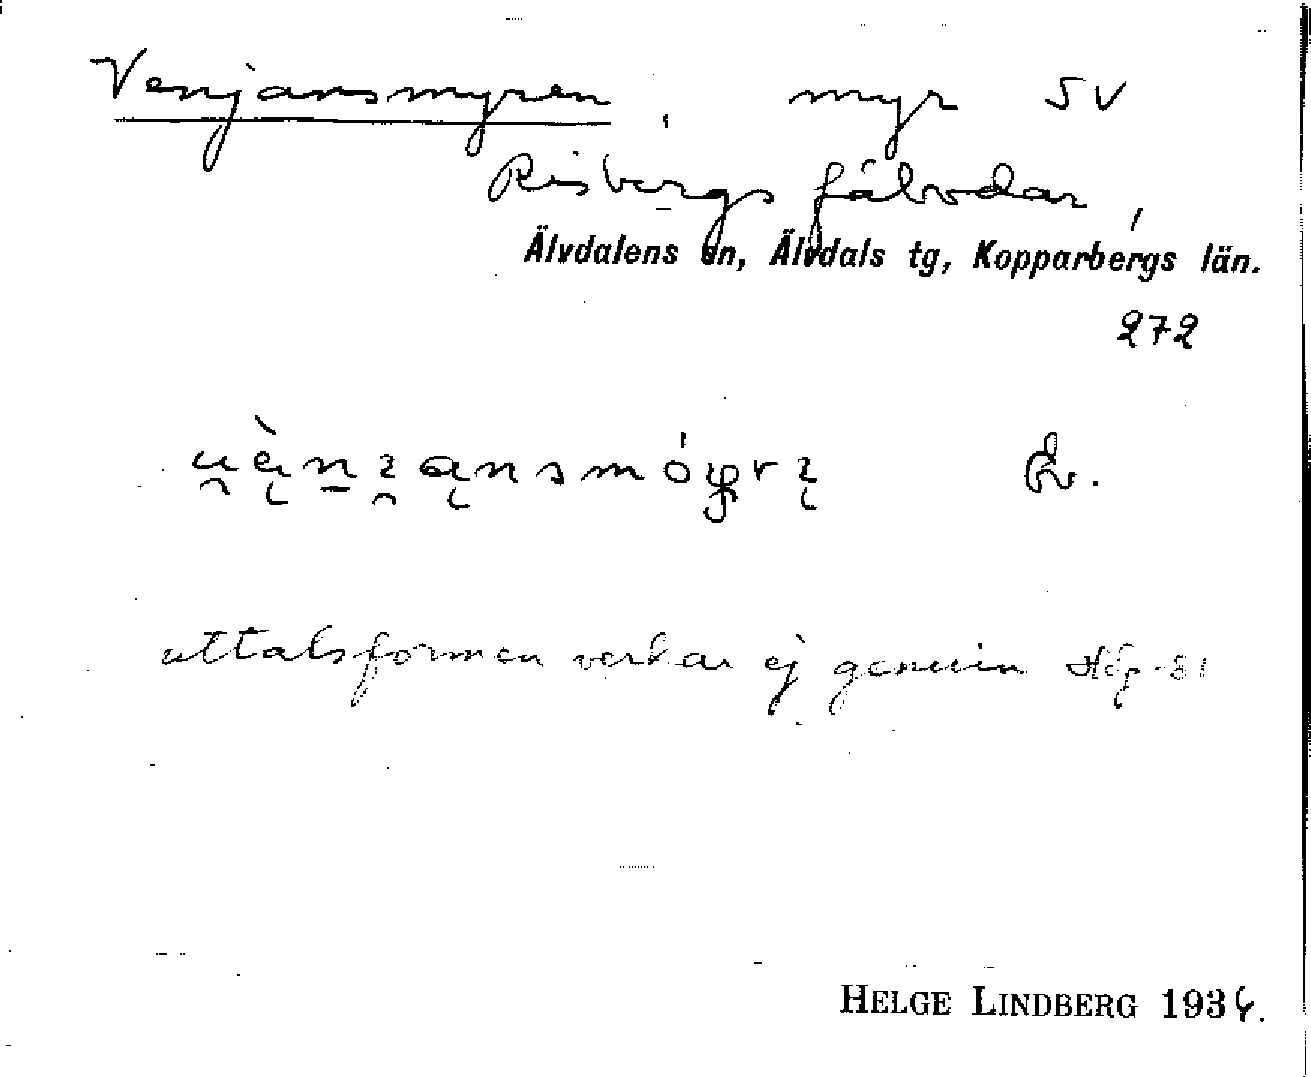 Venjansmyren, myr SV
Risbergs fäbodar,
Älvdalens sn, Älvdals tg, Kopparbergs län.
272
uttalsformen verkar ej genuin
HELGE LINDBERG 1934.